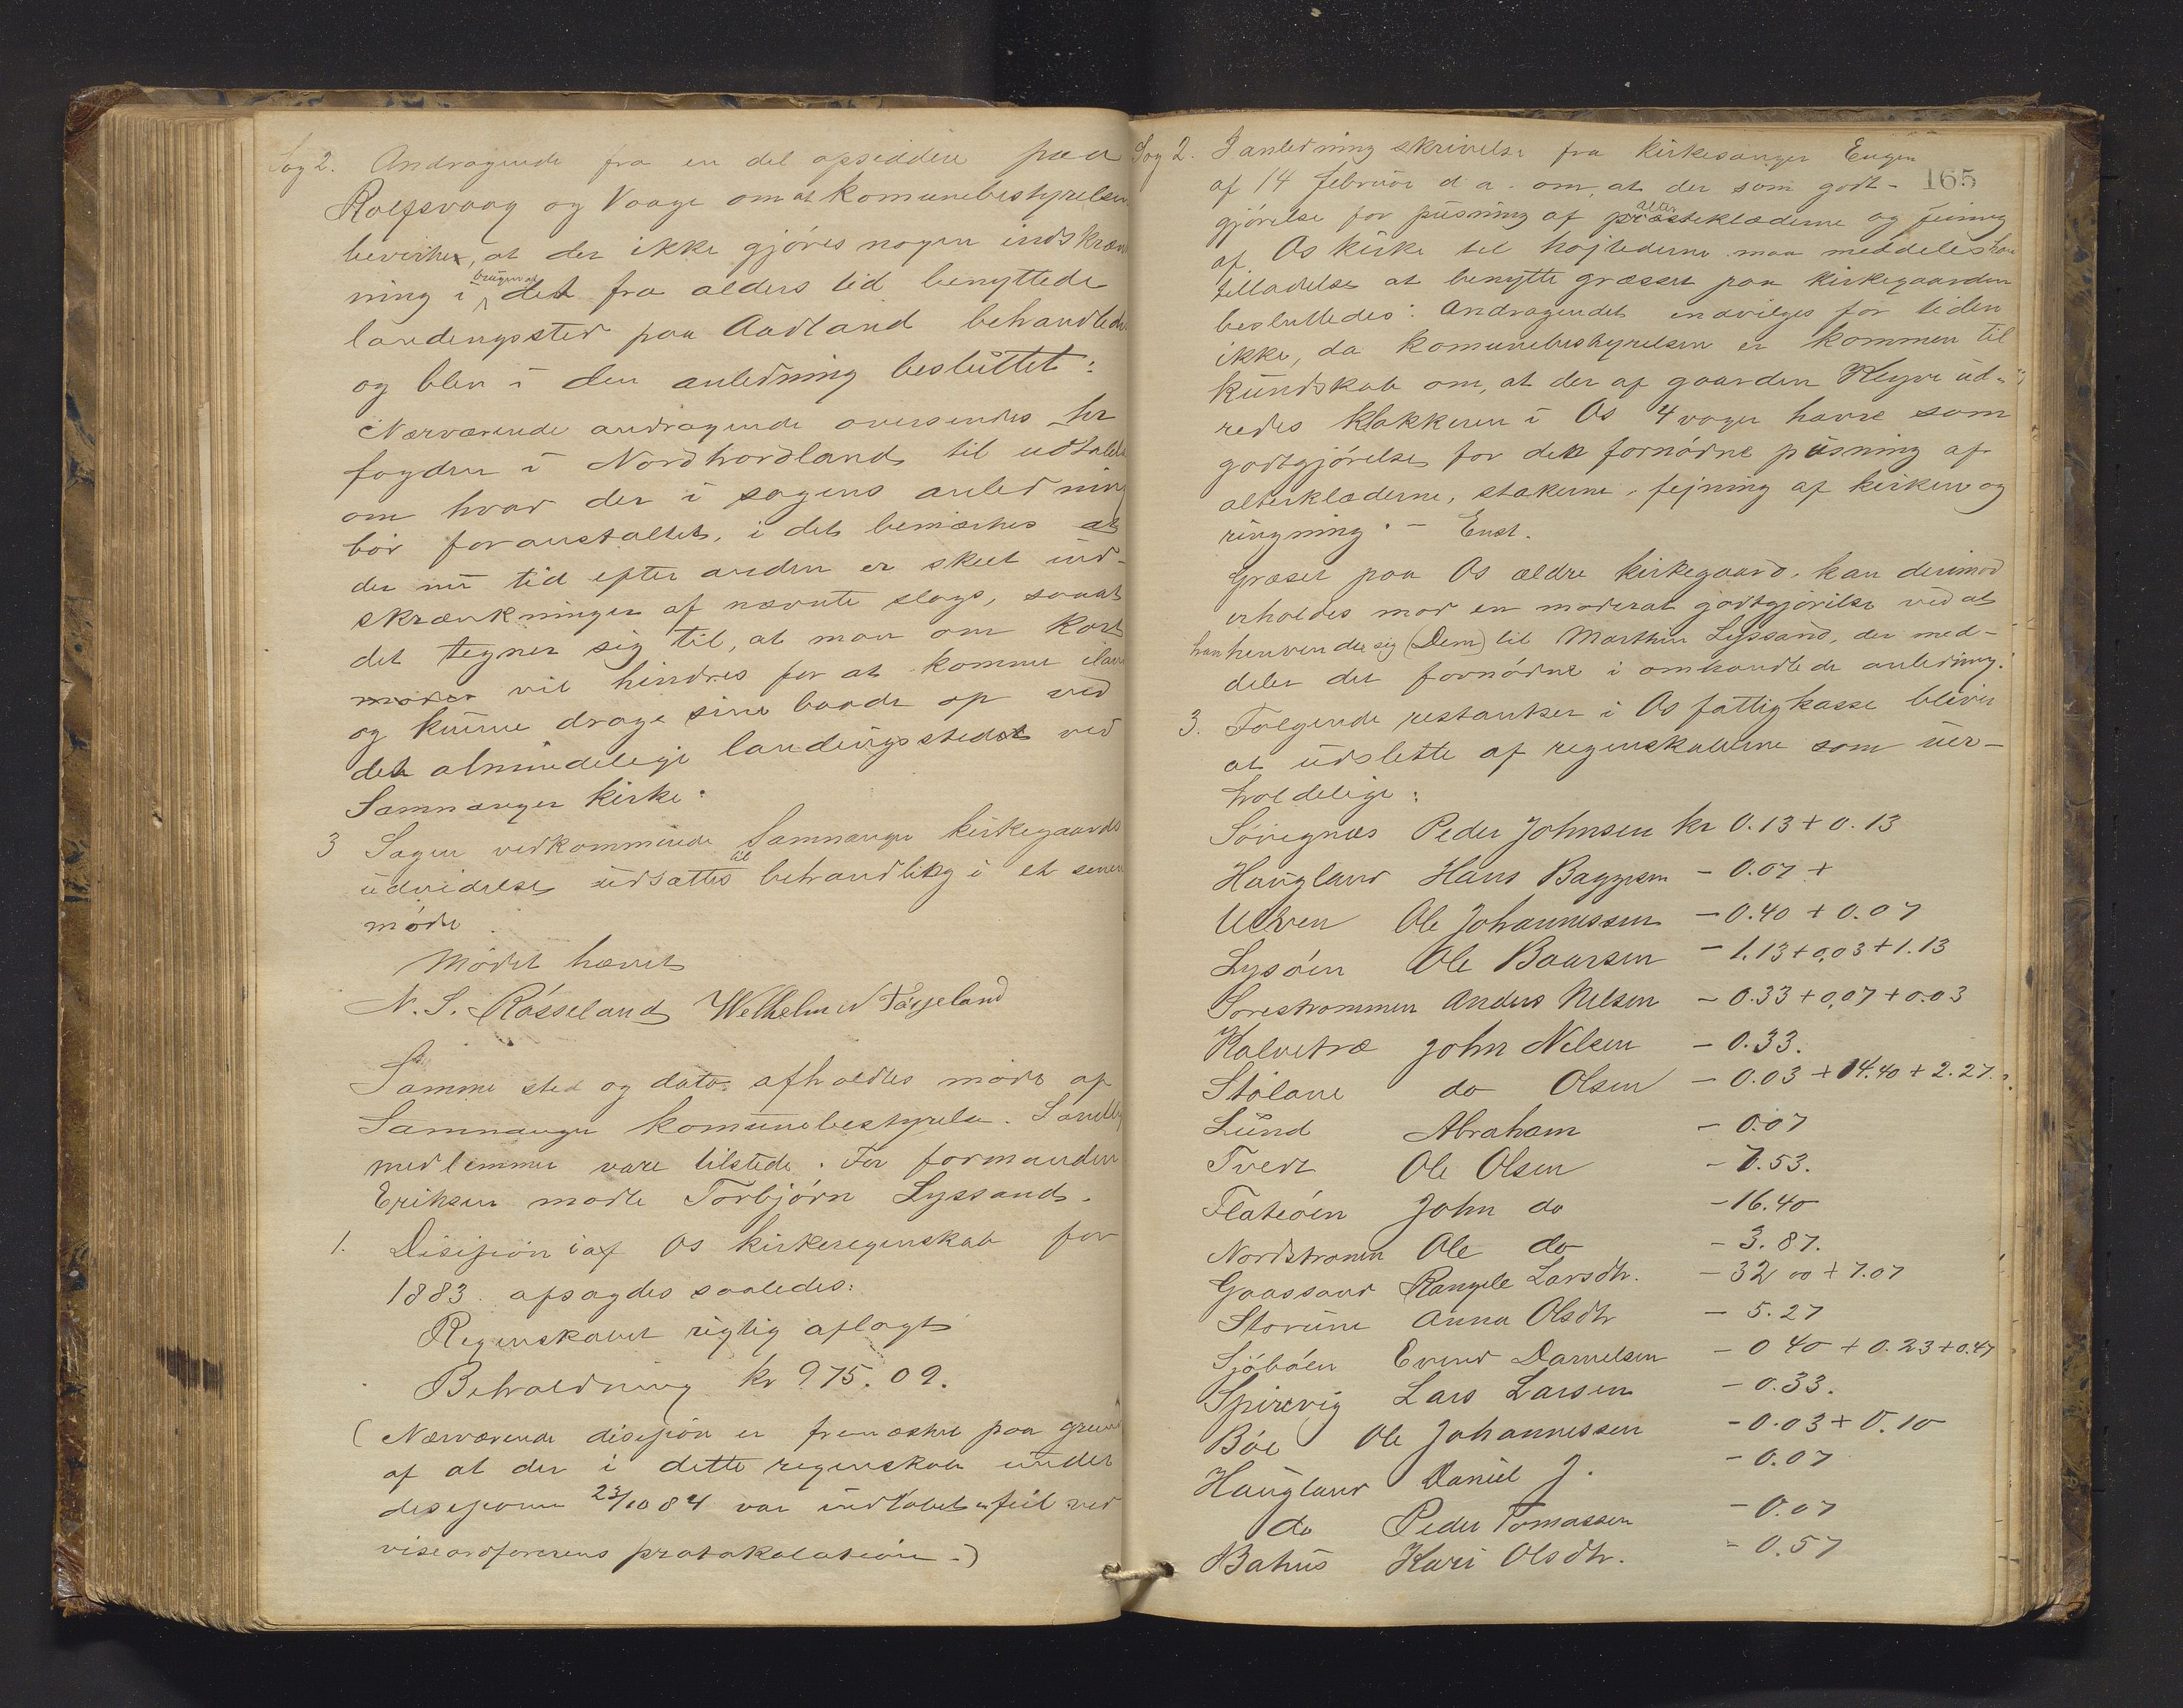 Sag 2. Andragende fra en del opsiddere paa
Rolfsvaag og Vaage om at komunebestyrelsen
bevirker, at der ikke gjöres nogen indskrænk
ning i brugen af det fra alders tid benyttede
landingssted paa Aadland behandledes
og blev i den anledning besluttet:
Nærværende andragende oversendes hr
fogden i Nordhordland til udtalelse
om hvad der i sagens anledning
bör foranstaltet, i det bemærkes at
der nu tid efter anden er skeet ind-
skrænkninger af nævnte slags, saaat
det tegner sig til, at man om kort
vil hindres for at komme
og kunne drage sine baade op ved
det almindelige landingsstedet ved
Samnanger kirke.
3 Sagen vedkommende Samnanger kirkegaards
udvidelse udsattes til behandling i et senere
möde.
Mödet hævet
N. S. Rösseland Wilhelm
Samme sted og dato afholdtes möde af
Samnanger komunebestyrelse. Samtlige
medlemmer vare tilstede. For formanden
Eriksen mödte Torbjörn Lyssand.
1. Disisjion i af Os kirkeregenskab for
1883 afsagdes saaledes:
Regenskabet rigtig aflagt
Beholdning kr 975.09.
(Nærværende disisjion er fremsatt paa grund
af at der i dette regenskab under
desisjonen 23/10 84 var indlöbet en feil ved
viseordförerens protokolation.)
Sag 2. I anledning skrivelse fra kirkesanger Eugen
165
af 14 februar d. a. om, at der som godt-
gjörelse for pusning af alter præsteklæderne og feining
af Os kirke til højtiderne maa meddeles ham
tilladelse at benytte græsset paa kirkegaarden
besluttedes: Andragendet indvilges for tiden
ikke, da komunebestyrelsen er kommen til
kundskab om, at der af gaarden Klyve ud-
redes klokkeren i Os 4 voger havre som
godtgjörelse for den fornödne pusning af
alterklæderne, stakerne, fejning af kirken og
ringning. - Enst.
Græset paa Os ældre kirkegaard kan derimod
erholdes mod en moderat godtgjörelse ved at
han henvender sig (Dem) til Marthin Lyssand, der med-
deler det fornödne i omhandlede anledning.
3. Fölgende restantser i Os fattigkasse bliver
at udslette af regenskaberne som uer-
holdelige:
Söregnes Peder Johnsen kr 0.13 + 0.13
Haugland Hans Baggesen - 0.07 +
Ulven Ole Johannessen - 0.40 + 0.07
Lysöen Ole Baarsen - 1.13 + 0,03 + 1.13
Sörestrommen Anders Nilsen - 0.33 + 0,07 + 0.03
Kalvetræ John Nilsen - 0.33.
Stölane do Olsen - 0.03 + 14.40 + 2.27.
Lund Abraham - 0.07
Tvedt Ole Olsen - 7.53.
Flateöen John do - 16.40
Nordstromen Ole do - 3.87.
Gaassand Rangele Larsdtr. - 32 00 + 7.07
Storune Anna Olsdtr - 5.27
Sjöböen Evind Danielsen - 0 40 + 0.23 + 0.47
Spirevig Lars Larsen - 0.33.
Böe Ole Johannessen - 0.03 + 0.10
Haugland Daniel J. - 0.07
do Peder Tomassen - 0.07
Bahus Kari Olsdtr. - 0.57